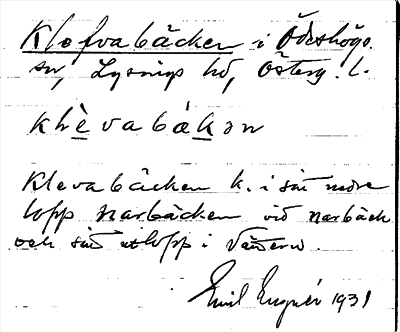 Klefvabäcken i Ödeshögs
sn, Lysings hd, Österg. l.
klèvabäkən
Klevabäcken k. i sitt nedre
lopp Narbäcken vid Narbäck
och sitt utlopp i Vättern.
Emil 1931